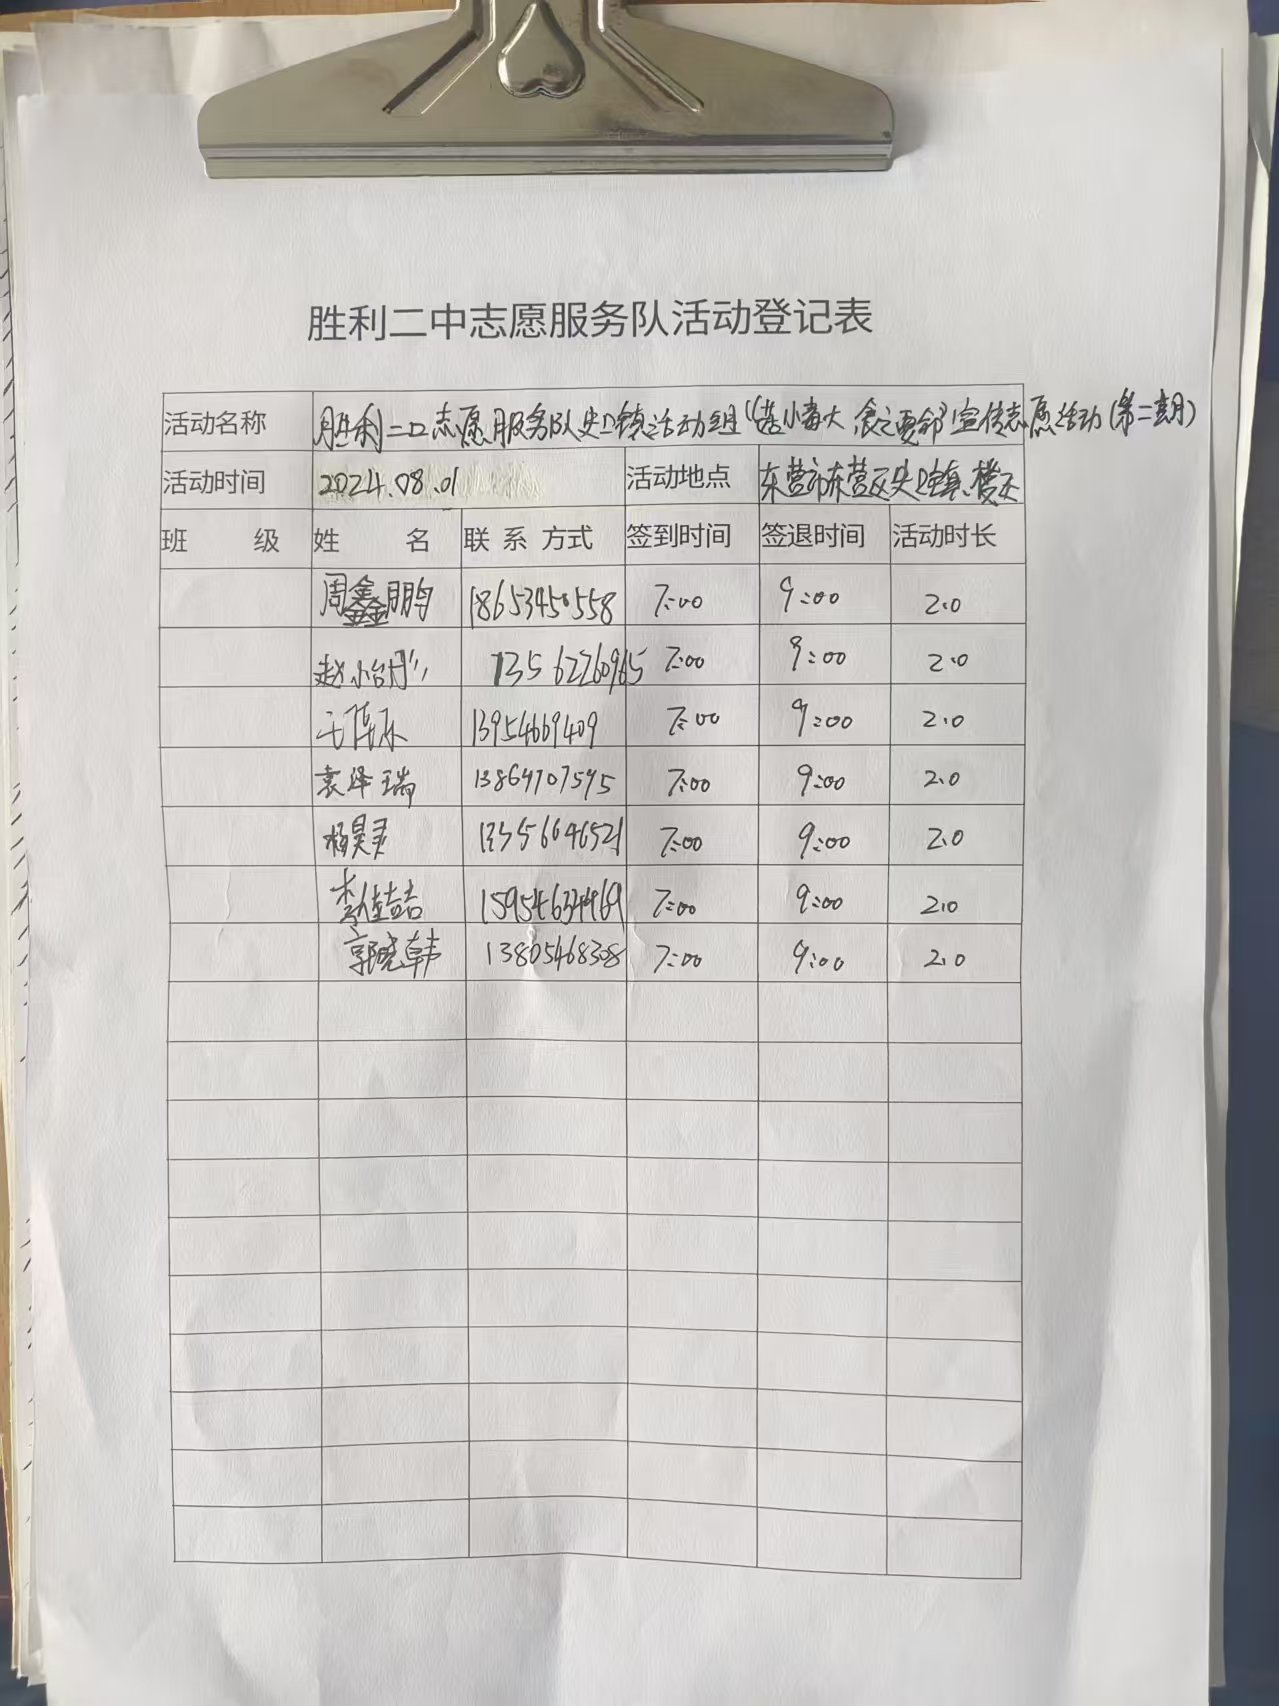 胜利二中志愿服务队活动登记表
活动名称 胜利二口志愿服务队史口镇活动组“菇小毒大 食之要命”宣传志愿活动(第二期)
活动时间 2024.08.01 活动地点 东营市东营区史口镇
班 级 姓 名 联系方式 签到时间 签退时间 活动时长
周鑫鹏 18653450558 7:00 9:00 2.0
赵 13562260965 7:00 9:00 2.0
13954669409 7:00 9:00 2.0
袁泽瑞 7:00 9:00 2.0
杨昊灵 7:00 9:00 2.0
李佳喆 15954634969 7:00 9:00 2.0
郭晓韩 13805468308 7:00 9:00 2.0